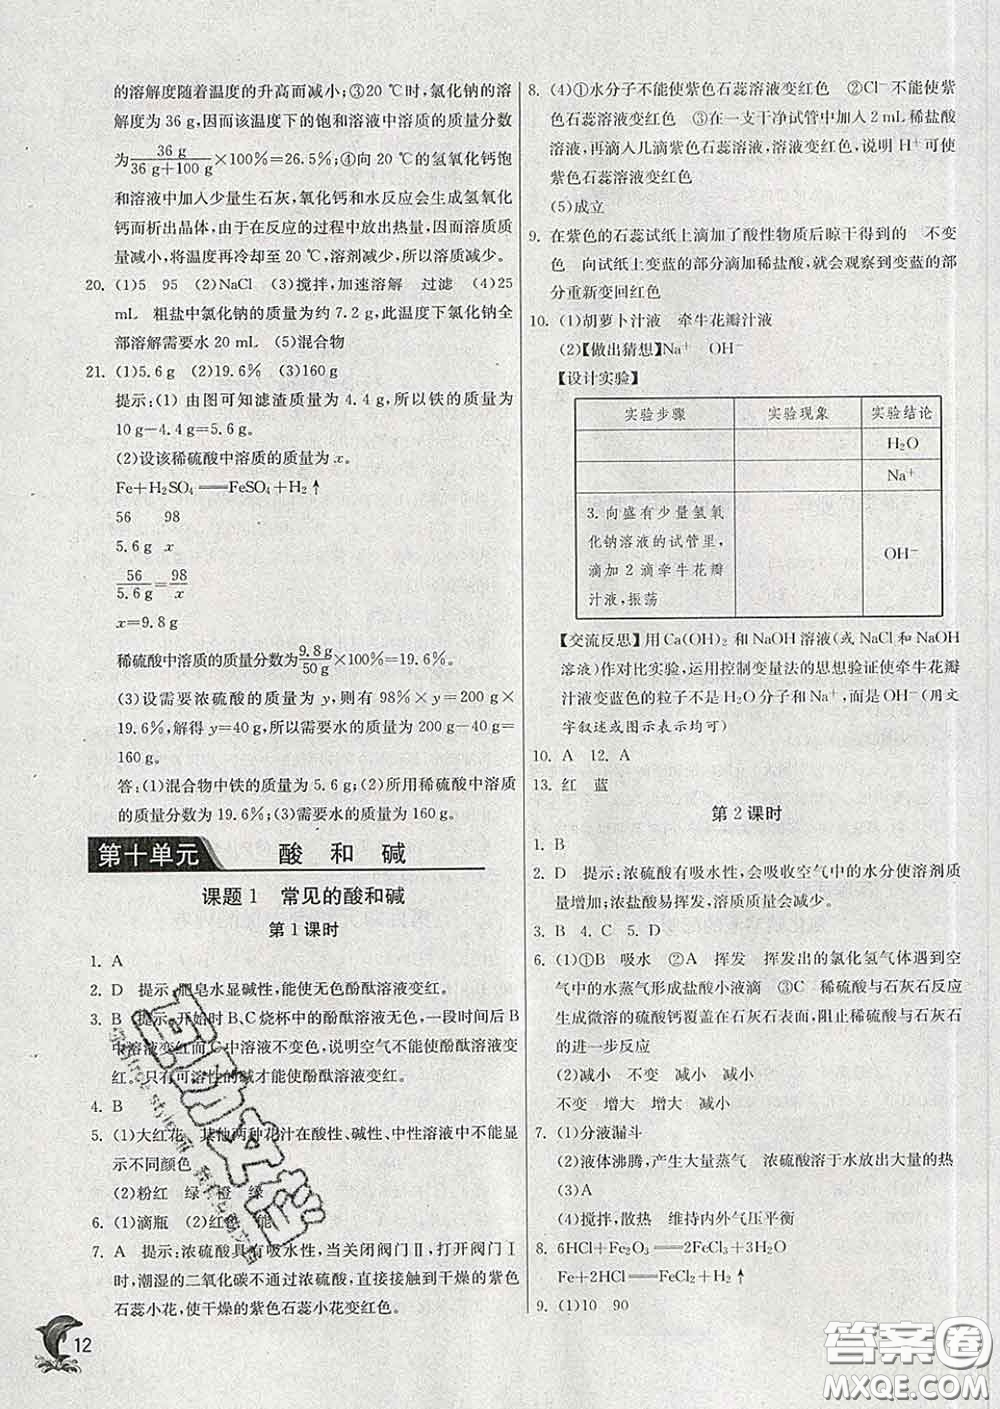 的溶解度随着温度的升高而减小;③20 ℃时,氯化钠的溶
解度为 36 g,因而该温度下的饱和溶液中溶质的质量分数
为 36 g/36 g+100 g ×100%=26.5%;④向 20 ℃的氢氧化钙饱
和溶液中加入少量生石灰,氧化钙和水反应会生成氢氧化
钙而析出晶体,由于在反应的过程中放出热量,因而溶质质
量减小,将温度再冷却至 20 ℃,溶剂减少,所以溶质减少。
20. (1)5 95 (2)NaCl (3)搅拌,加速溶解 过滤 (4)25
mL 粗盐中氯化钠的质量为约 7.2 g,此温度下氯化钠全
部溶解需要水 20 mL (5)混合物
21. (1)5.6 g (2)19.6% (3)160 g
提示:(1) 由图可知滤渣质量为 4.4 g,所以铁的质量为
10 g-4.4 g=5.6 g。
(2)设该稀硫酸中溶质的质量为 x。
Fe+H₂SO₄══FeSO₄+H₂↑
56 98
5.6 g x
56/5.6 g=98/x
x=9.8 g
稀硫酸中溶质的质量分数为 9.8 g/50 g ×100%=19.6%。
(3)设需要浓硫酸的质量为 y,则有 98%×y=200 g×
19.6%,解得 y=40 g,所以需要水的质量为 200 g-40 g=
160 g。
答:(1)混合物中铁的质量为 5.6 g;(2)所用稀硫酸中溶质
的质量分数为 19.6%;(3)需要水的质量为 160 g。
第十单元 酸 和 碱
课题 1 常见的酸和碱
第 1 课时
1. A
2. D 提示:肥皂水显碱性,能使无色酚酞溶液变红。
3. B 提示:开始时 B、C 烧杯中的酚酞溶液无色,一段时间后 B
中溶液变红而 C 中溶液不变色,说明空气不能使酚酞溶液变
红。只有可溶性的碱才能使酚酞溶液变红。
4. B
5. (1)大红花 其他两种花汁在酸性、碱性、中性溶液中不能显
示不同颜色
(2)粉红 绿 橙 绿
6. (1)滴瓶 (2)红色 能
7. A 提示:浓硫酸具有吸水性,当关闭阀门Ⅱ,打开阀门Ⅰ
时,潮湿的二氧化碳不通过浓硫酸,直接接触到干燥的紫色
石蕊小花,使干燥的紫色石蕊小花变红色。
12
8. (4)①水分子不能使紫色石蕊溶液变红色 ②Cl⁻不能使紫
色石蕊溶液变红色 ③在一支干净试管中加入 2 mL 稀盐酸
溶液,再滴入几滴紫色石蕊溶液,溶液变红色,说明 H⁺可使
紫色石蕊溶液变红色
(5)成立
9. 在紫色的石蕊试纸上滴加了酸性物质后晾干得到的 不变
色 向试纸上变蓝的部分滴加稀盐酸,就会观察到变蓝的部
分重新变回红色
10. (1)胡萝卜汁液 牵牛花瓣汁液
(2)【做出猜想】Na⁺ OH⁻
【设计实验】
实验步骤 实验现象 实验结论
H₂O
Na⁺
3. 向盛有少量氢氧
化钠溶液的试管里,
滴加 2 滴牵牛花瓣
汁液,振荡
OH⁻
【交流反思】用 Ca(OH)₂ 和 NaOH 溶液(或 NaCl 和 NaOH
溶液)作对比实验,运用控制变量法的思想验证使牵牛花瓣
汁液变蓝色的粒子不是 H₂O 分子和 Na⁺,而是 OH⁻(用文
字叙述或图示表示均可)
10. A 12. A
13. 红 蓝
第 2 课时
1. B
2. D 提示:浓硫酸有吸水性,会吸收空气中的水分使溶剂质
量增加;浓盐酸易挥发,溶质质量会减少。
3. B 4. C 5. D
6. (1)①B 吸水 ②A 挥发 挥发出的氯化氢气体遇到空
气中的水蒸气形成盐酸小液滴 ③C 稀硫酸与石灰石反应
生成微溶的硫酸钙覆盖在石灰石表面,阻止稀硫酸与石灰石
的进一步反应
(2)减小 不变 减小 减小
不变 增大 增大 减小
7. (1)分液漏斗
(2)液体沸腾,产生大量蒸气 浓硫酸溶于水放出大量的热
(3)A
(4)搅拌,散热 维持内外气压平衡
8. 6HCl+Fe₂O₃══2FeCl₃+3H₂O
Fe+2HCl══FeCl₂+H₂↑
9. (1)10 90
答案圈
MXQE.COM